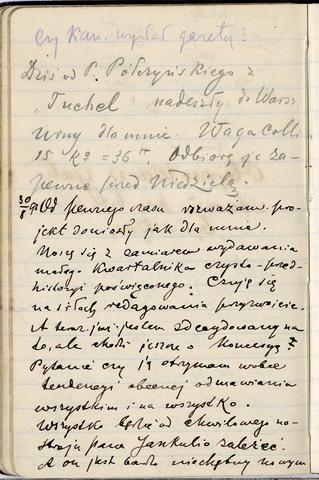 Czy Kan. wysłał gazety?
Dziś od P. Półczyńskiego z
„Tuchel nadeszły do Warsz
winy dla mnie. Waga Colli
15 Ko = 36 ℔. Odbiorę je za-
pewne przed Niedzielą.
30/8 91 Od pewnego czasu rozważam pro-
jekt doniosły jak dla mnie.
Noszę się z zamiarem wydawania
małego Kwartalnika czysto-przed-
historyi poświęconego. Czuję się
na siłach redagowania przyzwoicie.
A teraz już jestem zdecydowany na
to, ale chodzi jeszcze o Koncesyę?
Pytanie czy ją otrzymam wobec
tendencyi obecnej odmawiania
wszystkim i na wszystko.
Wszystko będzie od chwilowego na-
stroju pana Jankulio zależeć.
A on jest bardo niechętny nowym